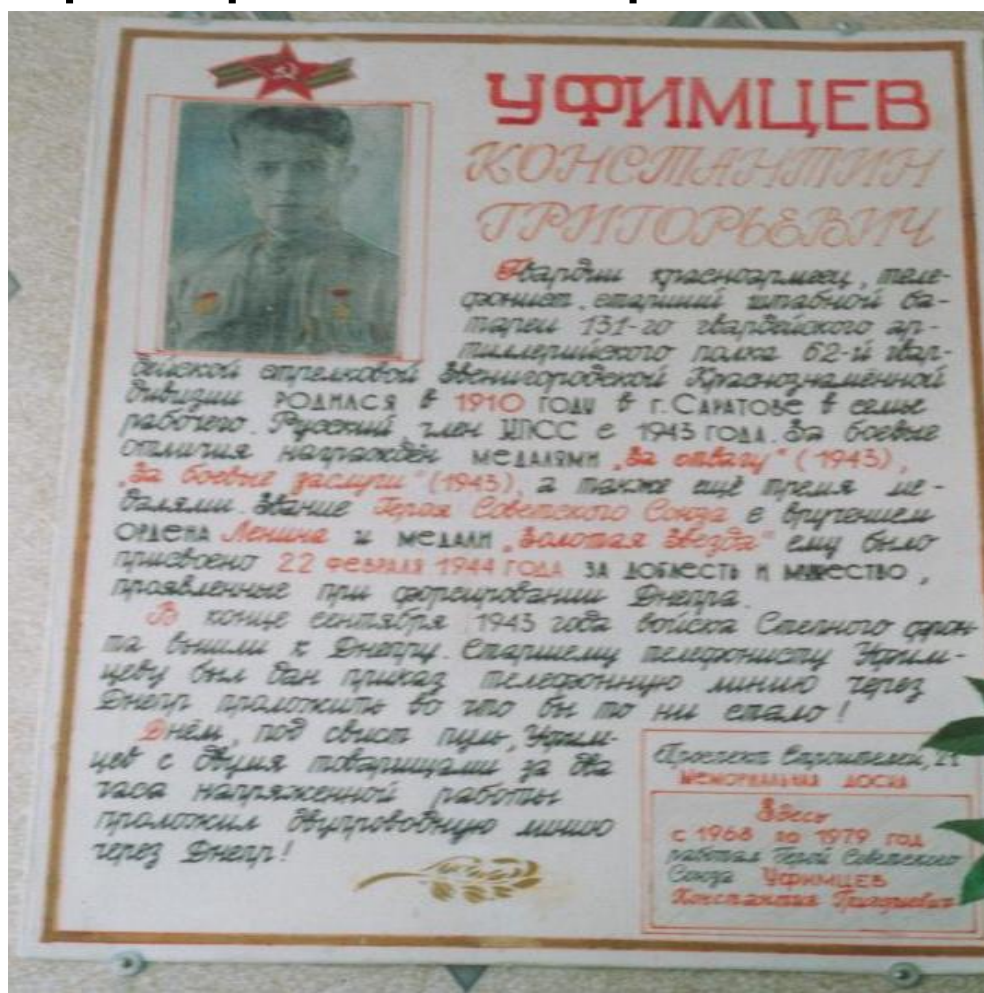 УФИМЦЕВ
КОНСТАНТИН
ГРИГОРЬЕВИЧ
Гвардии красноармеец, теле-
фонист старший штабной ба-
тареи 131-го гвардейского ар-
тиллерийского полка 62-й гвар-
дейской стрелковой Звенигородской Краснознамённой
дивизии РОДИЛСЯ в 1910 ГОДУ в г. САРАТОВЕ в семье
рабочего. Русский член КПСС с 1943 ГОДА. За боевые
отличия награждён МЕДАЛЯМИ „За отвагу" (1943),
„За боевые заслуги" (1943), а также ещё тремя ме-
далями. Звание Героя Советского Союза с вручением
ОРДЕНА Ленина и МЕДАЛИ „Золотая Звезда" ему было
присвоено 22 ФЕВРАЛЯ 1944 ГОДА ЗА ДОБЛЕСТЬ И МУЖЕСТВО,
проявленные при форсировании Днепра.
В конце сентября 1943 года войска Степного фрон-
та вышли к Днепру. Старшему телефонисту Уфим-
цеву был дан приказ телефонную линию через
Днепр проложить во что бы то ни стало!
Днём, под свист пуль, Уфим-
цев с двумя товарищами за два
часа напряженной работы
проложил двупроводную линию
через Днепр!
Проспект Строителей,
МЕМОРИАЛЬНАЯ ДОСКА
Здесь
с 1968 по 1979 год
работал Герой Советского
Союза УФИМЦЕВ
Константин Григорьевич